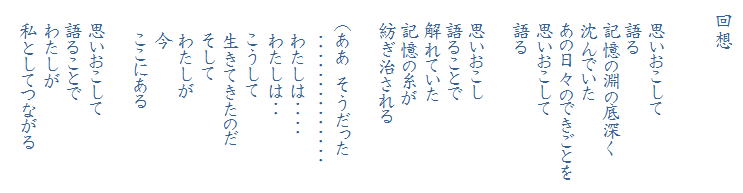 回想
思いおこして
語る
記憶の淵の底深く
沈んでいた
あの日々のできごとを
思いおこして
語る
思いおこし
語ることで
解れていた
記憶の糸が
紡ぎ治される
(ああ そうだった
・・・・・・・・・・・・・
わたしは・・・・
わたしは・・
こうして
生きてきたのだ
そして
わたしが
今
ここにある
思いおこして
語ることで
わたしが
私としてつながる